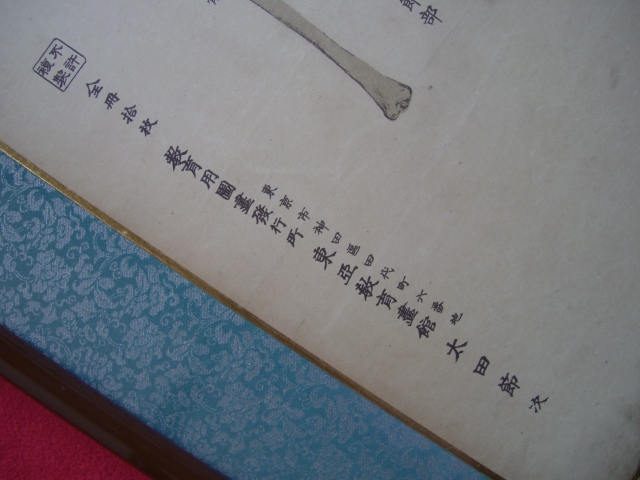 郎部
不許
複製
全冊拾枚
東京市神田區田代町六番地
教育用圖畫發行所 東亞教育畫館 太田節次